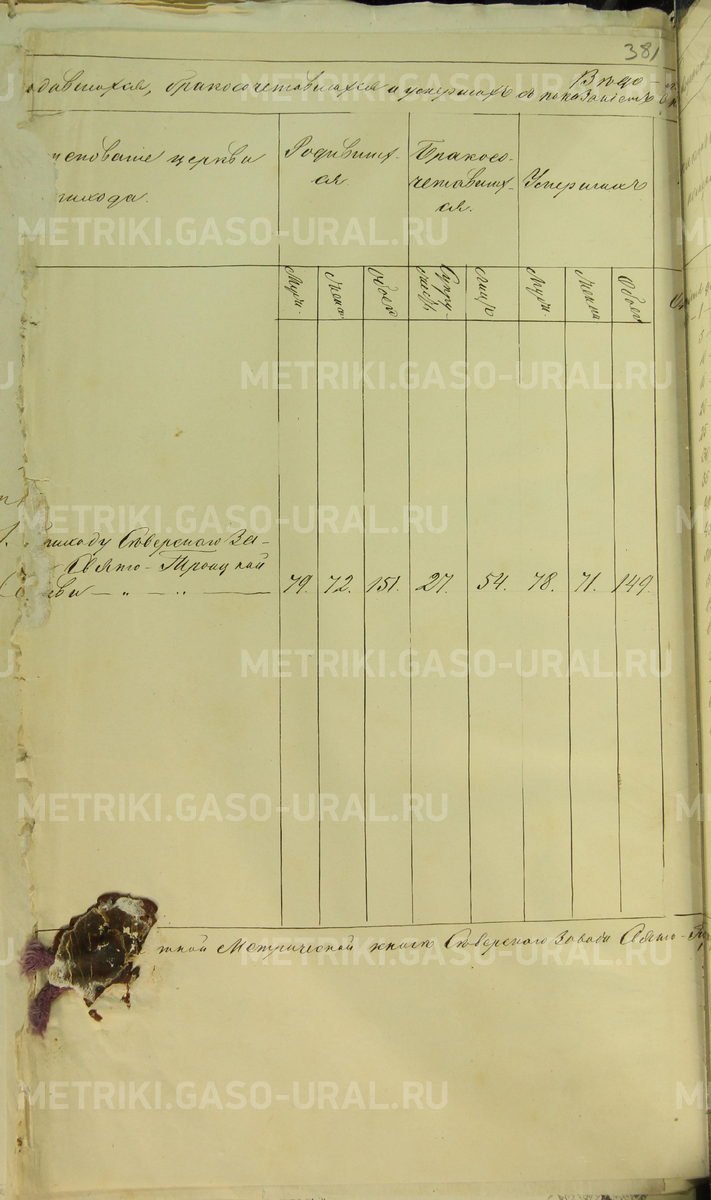 381
Вѣдо-
одавшихся, бракосочетавшихся и умершихъ съ показаніемъ
менованіе церкви
прихода.
Родивших-
ся
Бракосо-
четавших-
ся.
Умершихъ
Муж.
Женск
Обоего
Супру-
жест.
лицъ
Муж.
Женск
Обоего
1. приходу Сѣверскаго За-
Свято-Троицкой
кви — „ — „ — 79. 72. 151. 27. 54. 78. 71. 149.
тной Метрической книгѣ Сѣверскаго Завода Свято-
METRIKI.GASO-URAL.RU